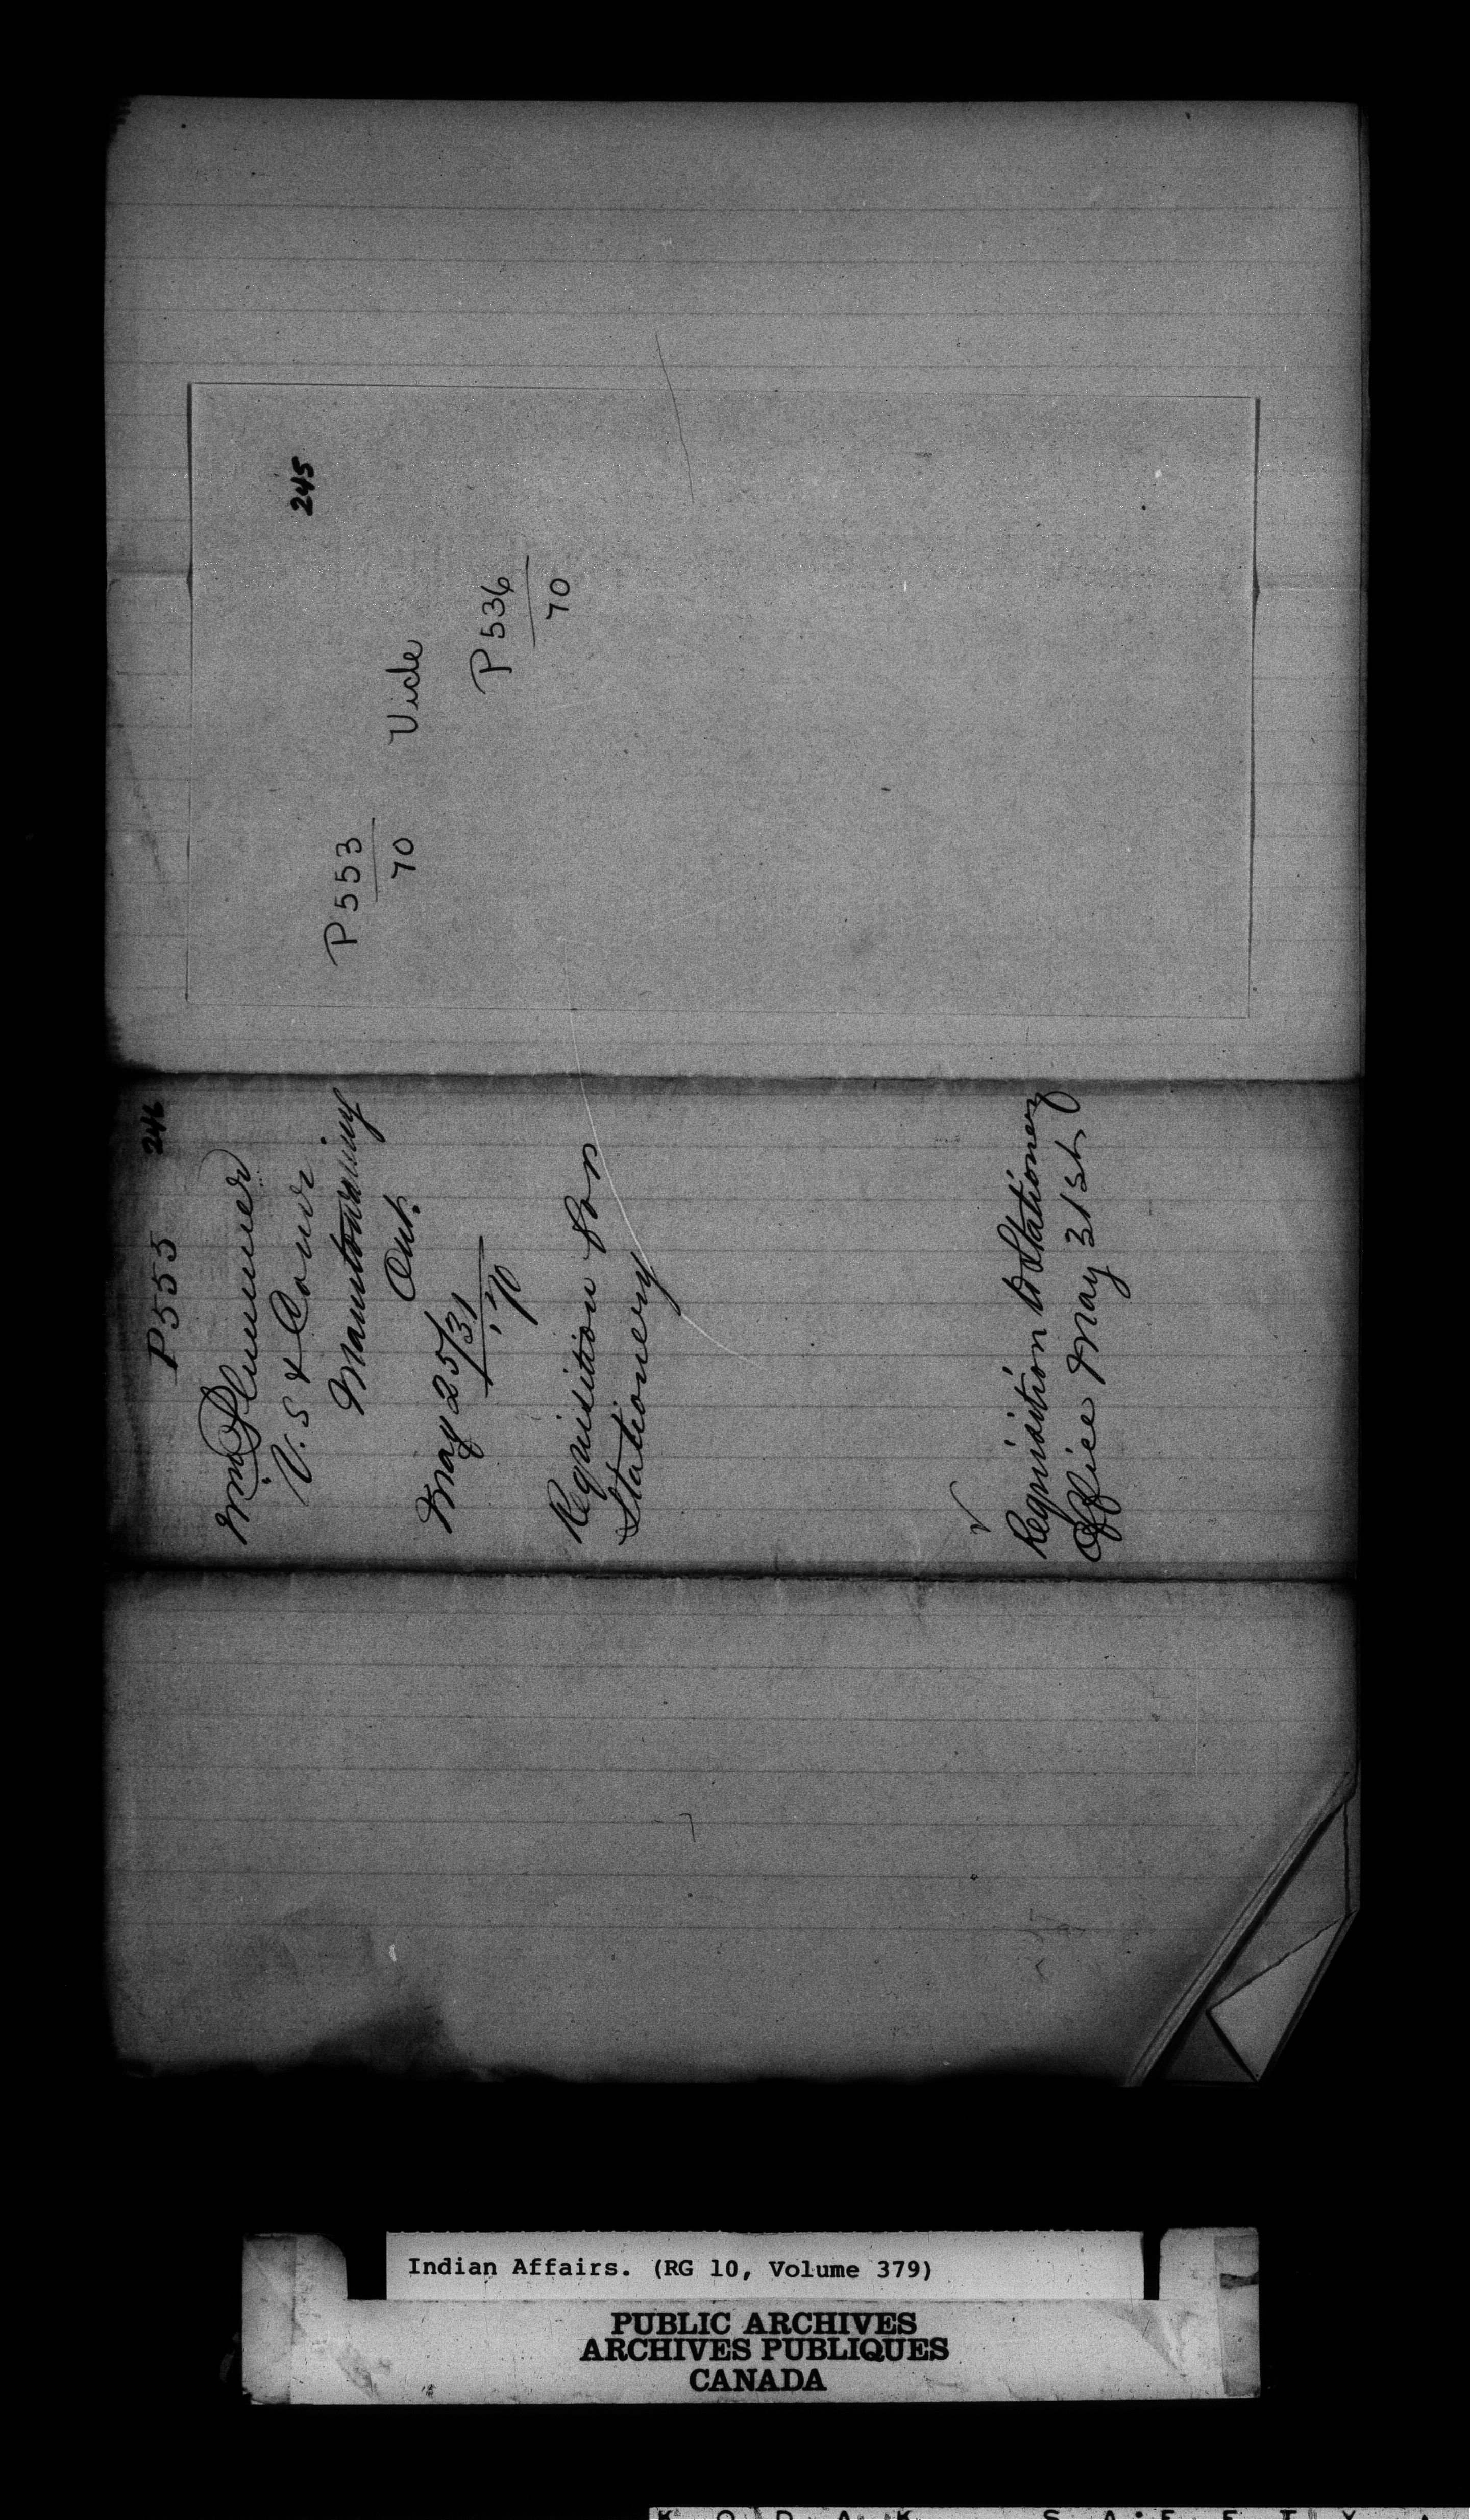 245
P 553
70
Vide
P 536
70
246
P555
Wm Plummer
V. S & Comr
Manitowaning
Ont.
May 25/31
'70
Requisition for
Stationery
Requisition to Stationery
Office May 31st
Indian Affairs. (RG 10, Volume 379)
PUBLIC ARCHIVES
ARCHIVES PUBLIQUES
CANADA
K O D A K S A F E T Y